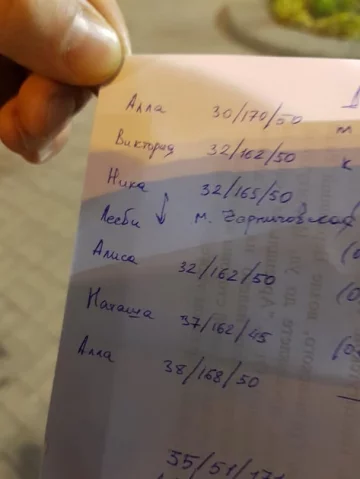 Алла 30/170/50
Виктория 32/162/50
Ника 32/165/50
Лесби м.
Алиса 32/162/50
Наташа 37/162/45
Алла 38/168/50
35/51/171